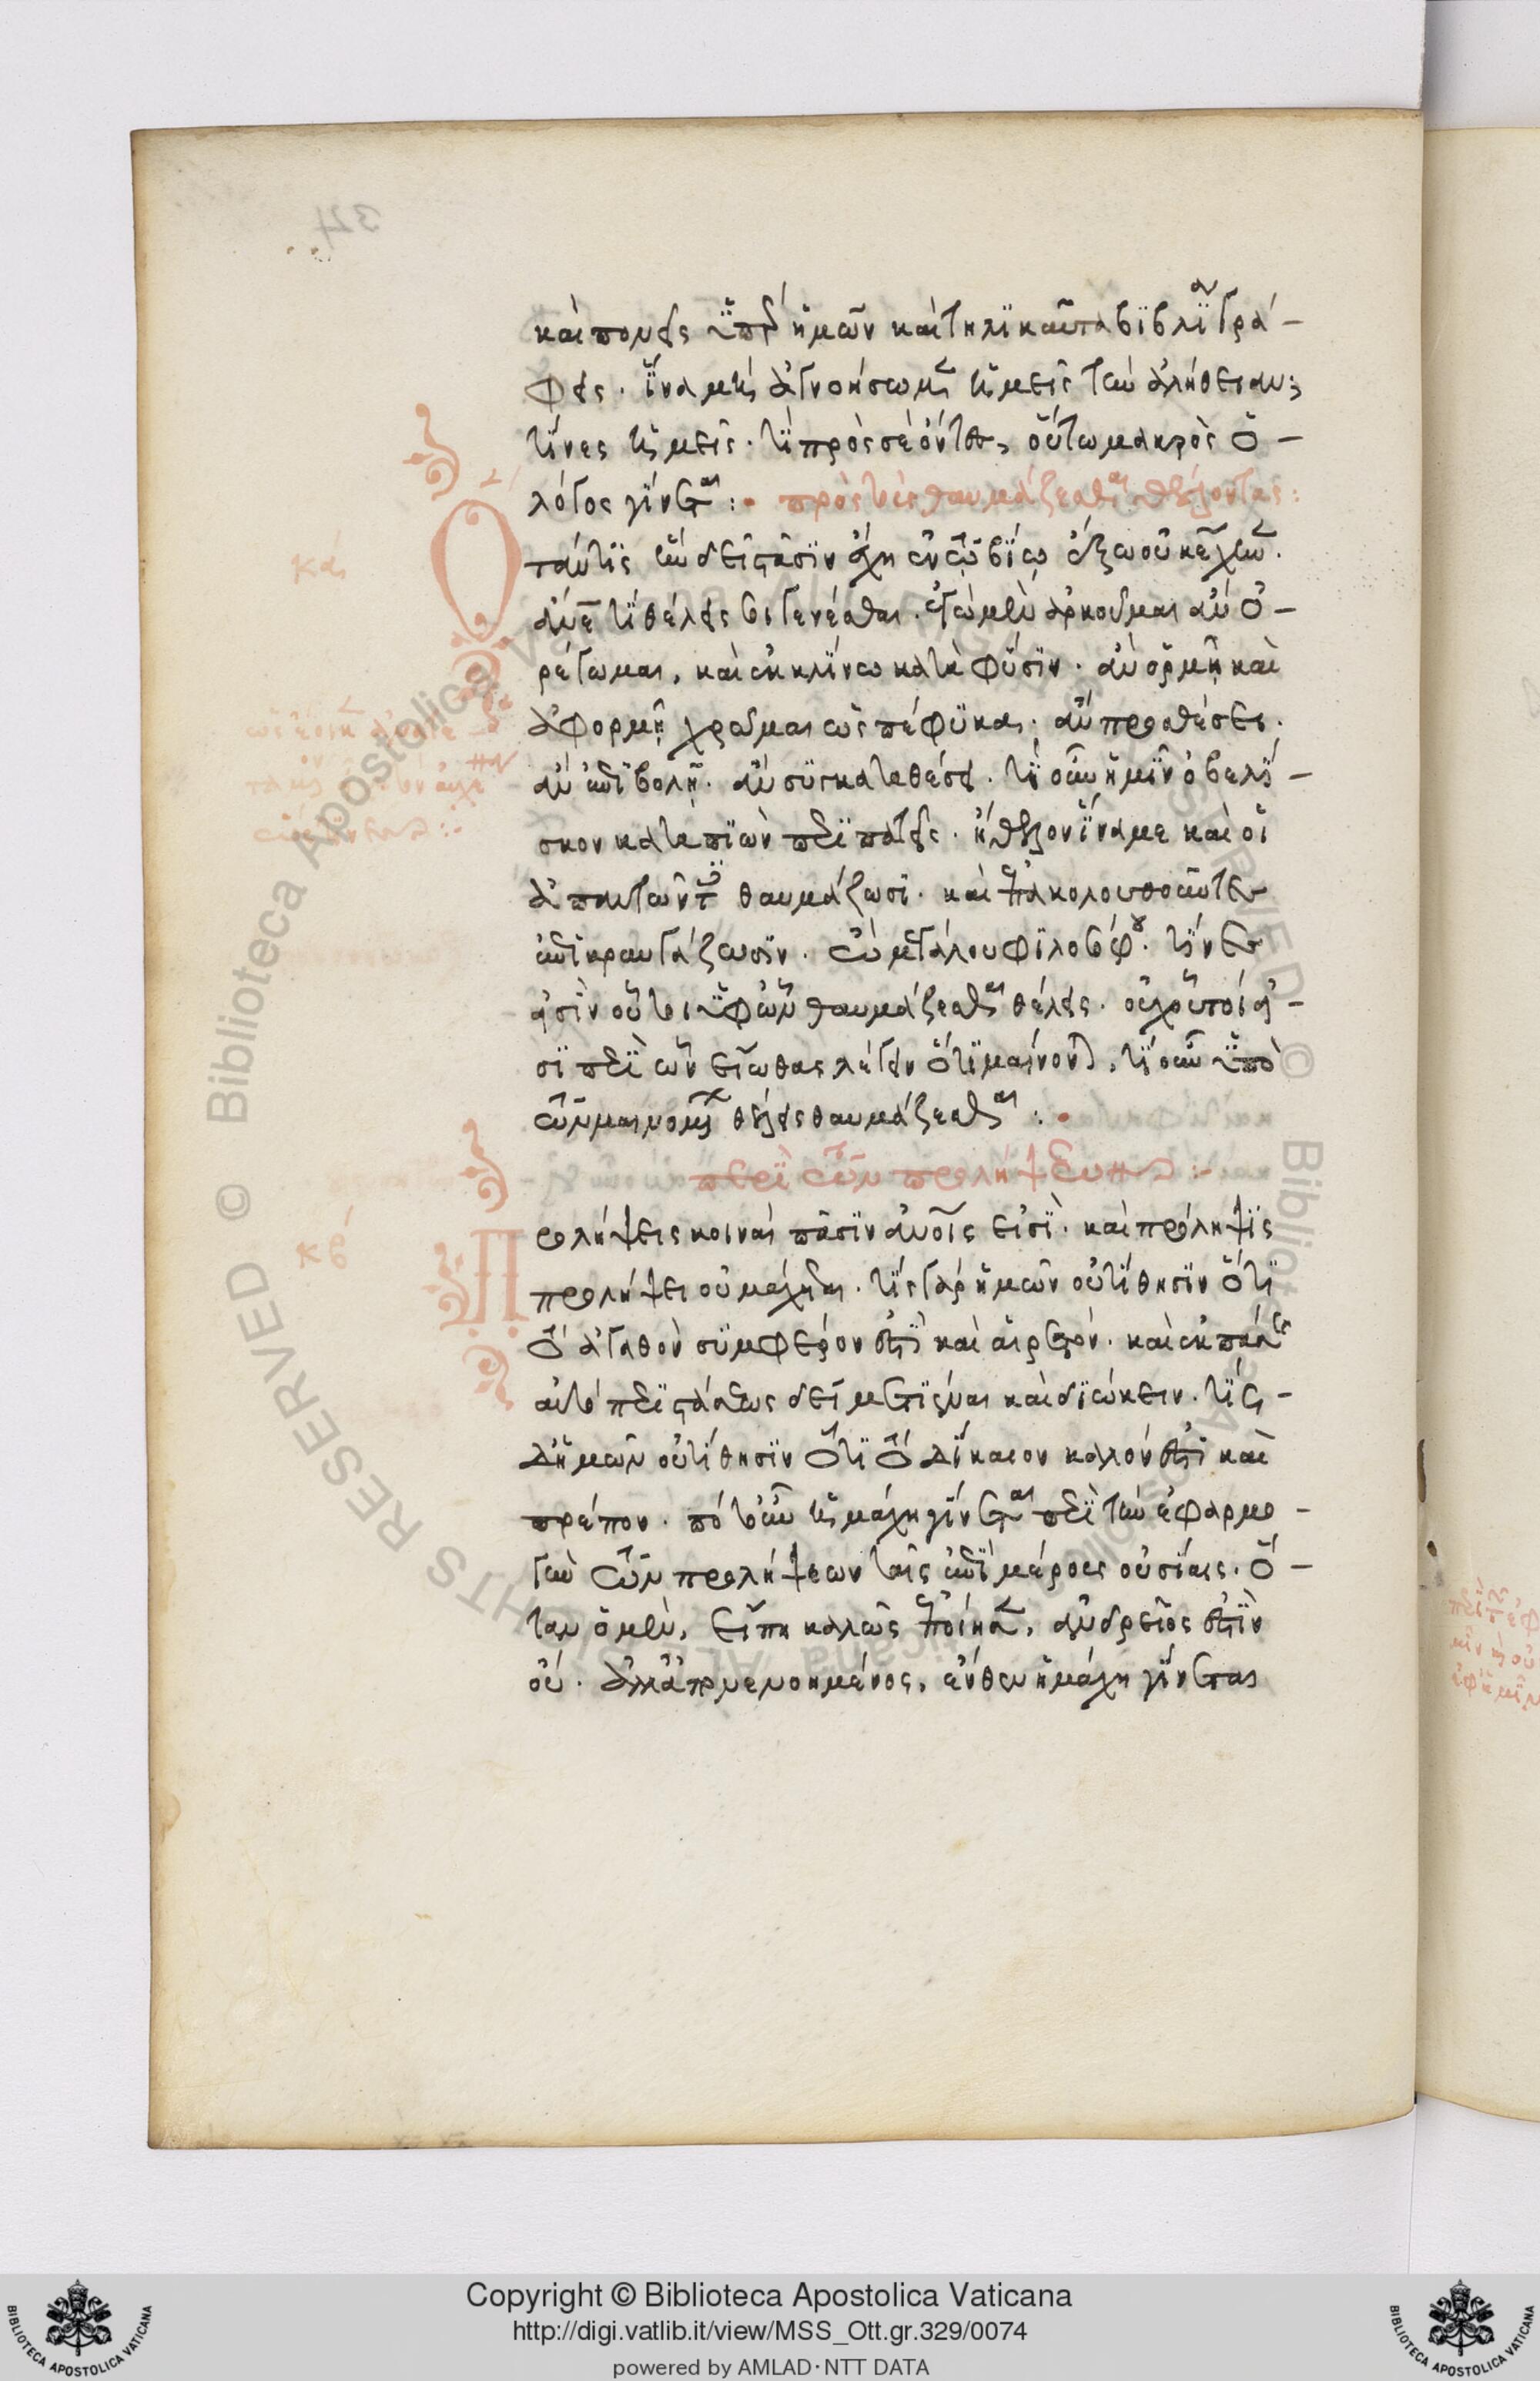 καὶ πονεῖς ὑπὲρ ἡμῶν καὶ τηλικαῦτα βιβλία γρά-
φεις. ἵνα μὴ ἀγνοήσωμεν ἡμεῖς τὴν ἀλήθειαν;
τίνες ἡμεῖς. τί πρὸς σὲ ὄντες, οὕτω μακρὸς ὁ
λόγος γίνεται: πρὸς τοὺς θαυμάζεσθαι θέλοντας:
κα
Ὅταν τις ἣν δεῖ στάσιν ἔχῃ ἐν τῷ βίῳ ἔξω οὐ κέχηνεν.
ἄνθρωπε τί θέλεις σοι γενέσθαι. ἐγὼ μὲν ἀρκοῦμαι ἂν ὀ-
ρέγωμαι, καὶ ἐκκλίνω κατὰ φύσιν. ἂν ὁρμῇ καὶ
ἀφορμῇ χρῶμαι ὡς πέφυκα. ἂν προθέσει.
ἂν ἐπιβολῇ. ἂν συγκαταθέσει. τί οὖν ἡμῖν ὀβελί-
σκον καταπιὼν περιπατεῖς. ἤθελον ἵνα με καὶ οἱ
ἀπαντῶντες θαυμάζωσι. καὶ ἐπακολουθοῦντες
ἐπικραυγάζωσιν. ὢ μεγάλου φιλοσόφου. τίνες
εἰσὶν οὗτοι ὑφ' ὧν θαυμάζεσθαι θέλεις. οὐχ οὗτοί εἰ-
σι περὶ ὧν εἴωθας λέγειν ὅτι μαίνονται, τί οὖν ὑπὸ
τῶν μαινομένων θέλεις θαυμάζεσθαι:
περὶ τῶν προλήψεων:-
κβ
Προλήψεις κοιναὶ πᾶσιν ἀνθρώποις εἰσί. καὶ πρόληψις
προλήψει οὐ μάχεται. τίς γὰρ ἡμῶν οὐ τίθησιν ὅτι
τὸ ἀγαθὸν συμφέρον ἐστὶ καὶ αἱρετόν. καὶ ἐκ πάσης
αὐτὸ περιστάσεως δεῖ μετιέναι καὶ διώκειν. τίς
δ' ἡμῶν οὐ τίθησιν ὅτι τὸ δίκαιον καλόν ἐστι καὶ
πρέπον. πότ' οὖν ἡ μάχη γίνεται περὶ τὴν ἐφαρμο-
γὴν τῶν προλήψεων ταῖς ἐπὶ μέρους οὐσίαις. ὅ-
ταν ὁ μὲν, εἴπῃ καλῶς ἐποίησεν, ἀνδρεῖός ἐστιν
οὔ. ἀλλ' ἀπονενοημένος, ἔνθεν ἡ μάχη γίνεται
Copyright © Biblioteca Apostolica Vaticana
http://digi.vatlib.it/view/MSS_Ott.gr.329/0074
powered by AMLAD·NTT DATA